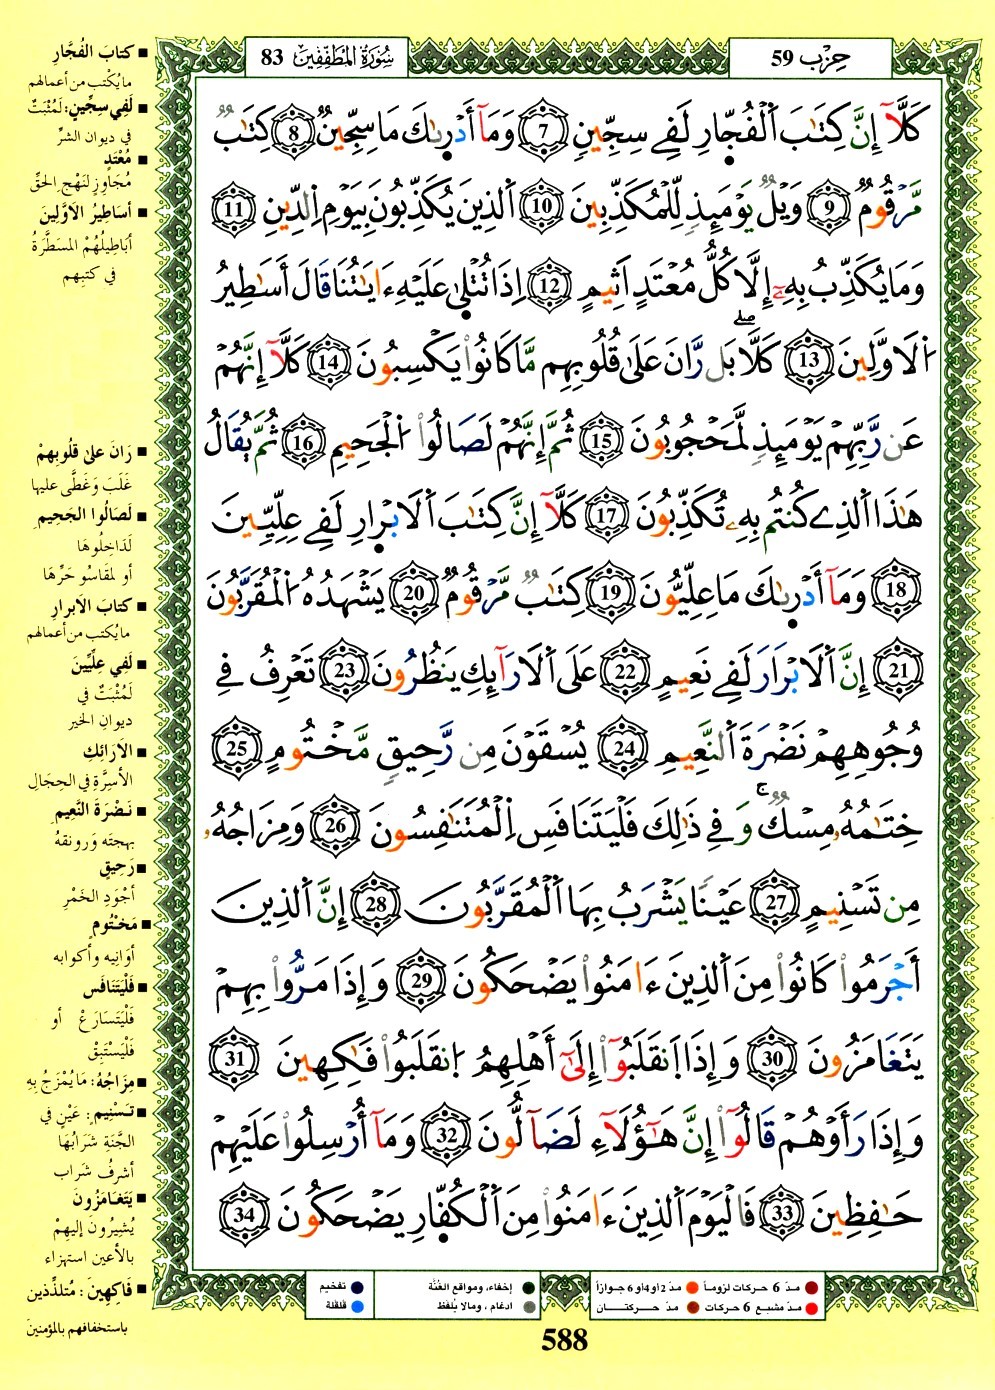 سُورَةُ المُطَفِّفِينَ 83
حِزْب 59
كَلَّآ إِنَّ كِتَٰبَ اَ۬لْفُجّ۪ارِ لَفِے سِجِّينٖ 7 وَمَآ أَدْر۪ىٰكَ مَا سِجِّينٞ 8 كِتَٰبٞ
مَّرْقُومٞ 9 وَيْلٞ يَوْمَئِذٖ لِّلْمُكَذِّبِينَ 10 اَ۬لذِينَ يُكَذِّبُونَ بِيَوْمِ اِ۬لدِّينِ 11
وَمَا يُكَذِّبُ بِهِۦٓ إِلَّا كُلُّ مُعْتَدٍ أَثِيمٍ 12 اِذَا تُتْل۪ىٰ عَلَيْهِ ءَايَٰتُنَا قَالَ أَسَٰطِيرُ
اُ۬لَاوَّلِينَ 13 كَلَّاۖ بَل رَّانَ عَلَىٰ قُلُوبِهِم مَّا كَانُواْ يَكْسِبُونَ 14 كَلَّآ إِنَّهُمْ
عَن رَّبِّهِمْ يَوْمَئِذٖ لَّمَحْجُوبُونَ 15 ثُمَّ إِنَّهُمْ لَصَالُواْ اُ۬لْجَحِيمِ 16 ثُمَّ يُقَالُ
هَٰذَا اَ۬لذِے كُنتُم بِهِۦ تُكَذِّبُونَ 17 كَلَّآ إِنَّ كِتَٰبَ اَ۬لَابْر۪ارِ لَفِے عِلِّيِّينَ
18 وَمَآ أَدْر۪ىٰكَ مَا عِلِّيُّونَ 19 كِتَٰبٞ مَّرْقُومٞ 20 يَشْهَدُهُ اُ۬لْمُقَرَّبُونَ
21 إِنَّ اَ۬لَابْرَارَ لَفِے نَعِيمٍ 22 عَلَى اَ۬لَارَآئِكِ يَنظُرُونَ 23 تَعْرِفُ فِے
وُجُوهِهِمْ نَضْرَةَ اَ۬لنَّعِيمِ 24 يُسْقَوْنَ مِن رَّحِيقٖ مَّخْتُومٍ 25
خِتَٰمُهُۥ مِسْكٞۚ وَفِے ذَٰلِكَ فَلْيَتَنَافَسِ اِ۬لْمُتَنَٰفِسُونَ 26 وَمِزَاجُهُۥ
مِن تَسْنِيمٍ 27 عَيْناٗ يَشْرَبُ بِهَا اَ۬لْمُقَرَّبُونَ 28 إِنَّ اَ۬لذِينَ
أَجْرَمُواْ كَانُواْ مِنَ اَ۬لذِينَ ءَامَنُواْ يَضْحَكُونَ 29 وَإِذَا مَرُّواْ بِهِمْ
يَتَغَامَزُونَ 30 وَإِذَا اَ۪نقَلَبُوٓاْ إِلَىٰٓ أَهْلِهِمُ اُ۪نقَلَبُواْ فَٰكِهِينَ 31
وَإِذَا رَأَوْهُمْ قَالُوٓاْ إِنَّ هَٰٓؤُلَآءِ لَضَآلُّونَ 32 وَمَآ أُرْسِلُواْ عَلَيْهِمْ
حَٰفِظِينَ 33 فَالْيَوْمَ اَ۬لذِينَ ءَامَنُواْ مِنَ اَ۬لْكُفّ۪ارِ يَضْحَكُونَ 34
■ كتابَ الفُجَّارِ
ما يُكْتب من أعمالهم
■ لَفِي سِجِّينٍ: لَمُثْبَتٌ
في ديوان الشرِّ
■ مُعْتَدٍ
مُجَاوِزٍ لنَهْجِ الحَقِّ
■ أسَاطِيرُ الاوَّلِينَ
أبَاطِيلُهُمْ المسَطَّرَةُ
في كتبِهم
■ رَانَ علىٰ قلُوبِهمْ
غَلَبَ وَغَطَّى عليها
■ لَصَالُوا الجَحيمِ
لَدَاخِلُوهَا
أو لمقَاسُو حَرِّهَا
■ كتابَ الابرارِ
ما يُكتب من أعمالهم
■ لَفِي عِلِّيِّينَ
لَمُثْبَتٌ في
ديوانِ الخير
■ الارَائكِ
الأسِرَّةِ في الحِجَالِ
■ نَضْرَةَ النَّعِيمِ
بهجتَه وَرونقهُ
■ رَحِيقٍ
أجْوَدِ الخَمْرِ
■ مَخْتُومٍ
أوَانِيه وأكوابه
■ فَلْيَتَنَافَسِ
فَلْيَتَسارَعْ أو
فَلْيَسْتَبِقْ
■ مِزَاجُهُ: مَا يُمْزَجُ بِهِ
■ تَسْنِيمٍ: عَيْنٍ في
الجَنَّةِ شَرَابُهَا
أشرفُ شَراب
■ يَتَغَامَزُونَ
يُشِيرُونَ إليهِمْ
بالأعينِ استهزاء
■ فَاكِهِينَ: مُتلذِّذين
باستخفافهم بالمؤمنينَ
مدّ 6 حركات لزوماً
مدّ 2 أو 4 أو 6 جوازاً
مدّ مشبع 6 حركات
مدّ حركتان
إخفاء، ومواقع الغُنَّة
ادغام، وما لا يُلفَظ
تفخيم
قلقلة
588